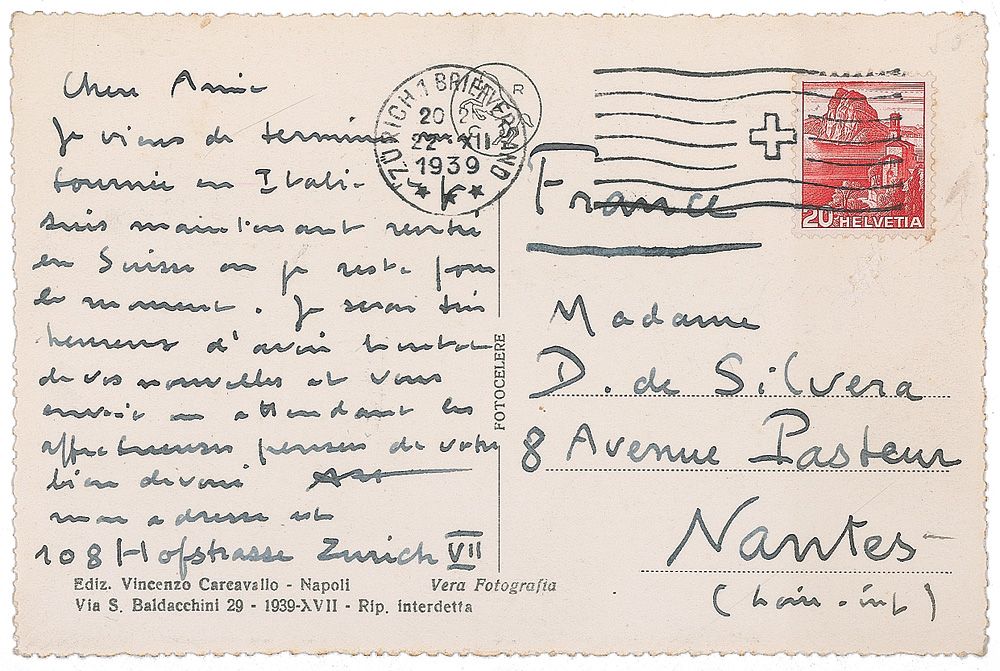 Chère Amie
Je viens de terminer
tournée en Italie
suis maintenant rentré
en Suisse ou je reste pour
le moment. Je serai très
heureux d'avoir bientot
de vos nouvelles et vous
envoie en attendant les
affectueuses pensées de votre
bien dévoué
mon adresse est
108 Hofstrasse Zurich VII
Ediz. Vincenzo Carcavallo - Napoli Vera Fotografia
Via S. Baldacchini 29 - 1939-XVII - Rip. interdetta
FOTOCELERE
ZÜRICH 1 BRIEFVERSAND
20
22-XII
1939
R
20 HELVETIA
France
Madame
D. de Silvera
8 Avenue Pasteur
Nantes
(Loire-inf)